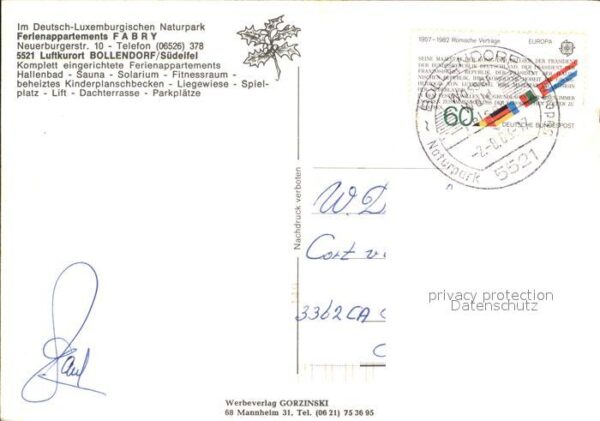 Im Deutsch-Luxemburgischen Naturpark
Ferienappartements FABRY
Neuerburgerstr. 10 - Telefon (06526) 378
5521 Luftkurort BOLLENDORF/Südeifel
Komplett eingerichtete Ferienappartements
Hallenbad - Sauna - Solarium - Fitnessraum -
beheiztes Kinderplanschbecken - Liegewiese - Spiel-
platz - Lift - Dachterrasse - Parkplätze
1957-1982 Römische Verträge EUROPA
60
DEUTSCHE BUNDESPOST
Naturpark 5521
Nachdruck verboten
W. D
Cort v
3362 CA
privacy protection
Datenschutz
Paul
Werbeverlag GORZINSKI
68 Mannheim 31, Tel. (06 21) 75 36 95